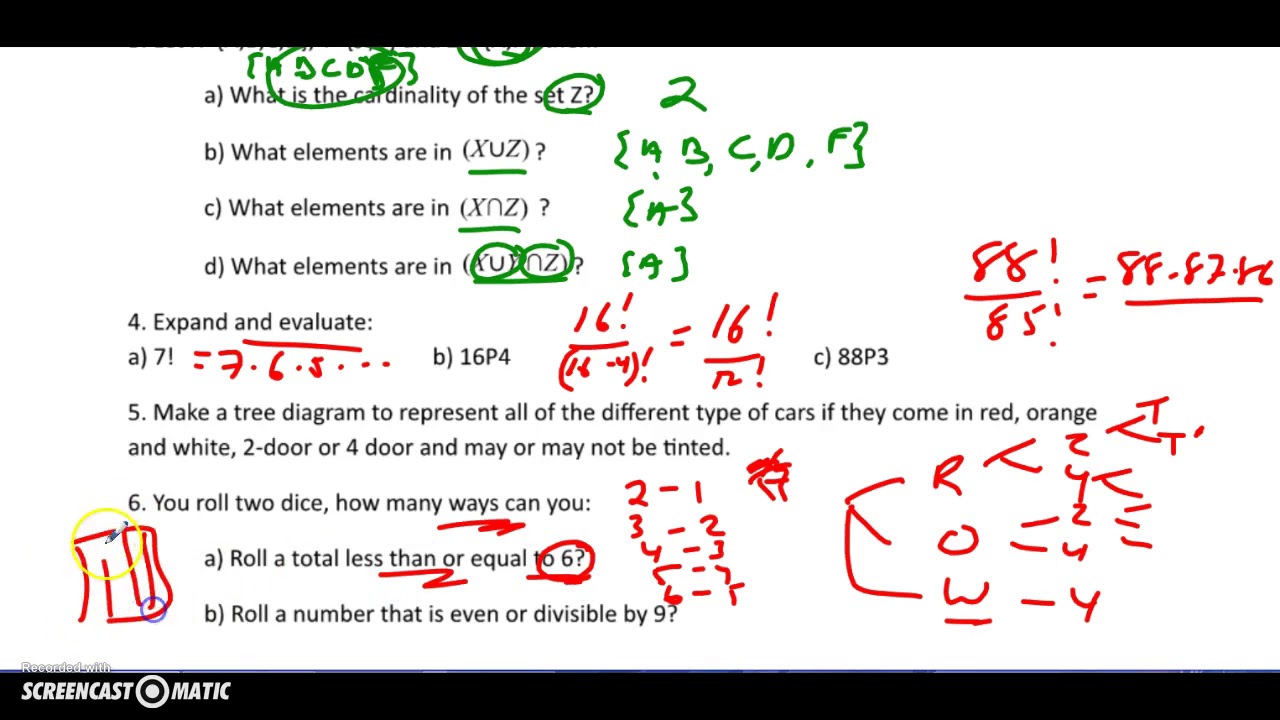 {A B C D F}
a) What is the cardinality of the set Z? 2
b) What elements are in (X∪Z) ? {A, B, C, D, F}
c) What elements are in (X∩Z) ? {A}
d) What elements are in (X∪Y)∩Z) ? {A}
88! / 85! = 88·87·86
4. Expand and evaluate:
a) 7! = 7·6·5··· b) 16P4 16! / (16-4)! = 16! / 12! c) 88P3
5. Make a tree diagram to represent all of the different type of cars if they come in red, orange
and white, 2-door or 4 door and may or may not be tinted.
R 2 T
T
4
O 2
4
W 4
6. You roll two dice, how many ways can you: 2 – 1
3 – 2
a) Roll a total less than or equal to 6? 4 – 3
6 – 5
b) Roll a number that is even or divisible by 9?
Recorded with
SCREENCAST MATIC